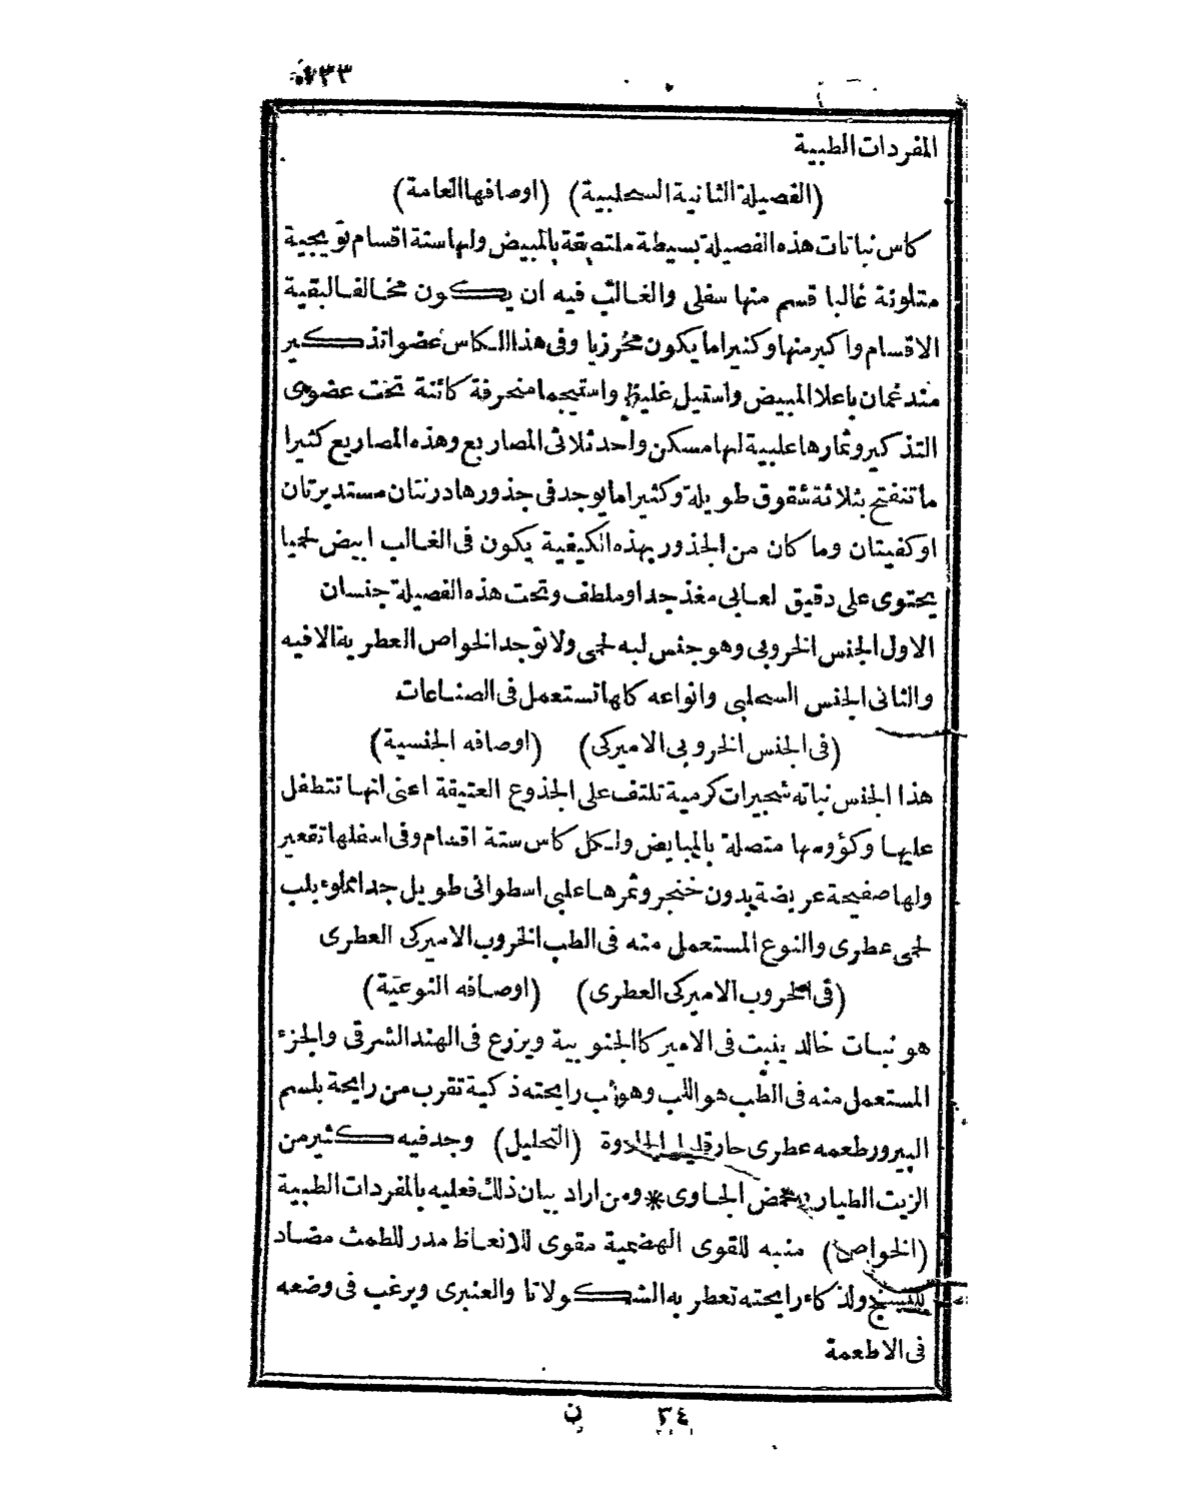 ٢٣٣
المفردات الطبية
(الفصيلة الثانية السحلبية) (اوصافها العامة)
كاس نباتات هذه الفصيلة بسيطة ملتصقة بالمبيض ولها ستة اقسام تويجية
متلونة غالبا قسم منها سفلى والغالب فيه ان يكون مخالفا لبقية
الاقسام واكبر منها وكثيرا ما يكون محرزيا وفى هذا الكاس عضوا تذكير
مندغمان باعلا المبيض واستيل غليظ واستيجما منحرفة كائنة تحت عضوى
التذكير وثمارها علبية لها مسكن واحد ثلاثى المصاريع وهذه المصاريع كثيرا
ما تنفتح بثلاثة شقوق طويلة وكثيرا ما يوجد فى جذورها درنتان مستديرتان
او كفيتان وما كان من الجذور بهذه الكيفية يكون فى الغالب ابيض لحميا
يحتوى على دقيق لعابى مغذ جدا وملطف وتحت هذه الفصيلة جنسان
الاول الجنس الخروبى وهو جنس لبه لحمى ولا توجد الخواص العطرية الا فيه
والثانى الجنس السحلبى وانواعه كلها تستعمل فى الصناعات
(فى الجنس الخروبى الاميركى) (اوصافه الجنسية)
هذا الجنس نباته شجيرات كرمية تلتف على الجذوع العتيقة اعنى انها تتطفل
عليها وكؤوسها متصلة بالمبايض ولكل كاس ستة اقسام وفى اسفلها تقعير
ولها صفيحة عريضة بدون خنجر وثمرها علبى اسطوانى طويل جدا مملوء بلب
لحمى عطرى والنوع المستعمل منه فى الطب الخروب الاميركى العطرى
(فى الخروب الاميركى العطرى) (اوصافه النوعية)
هو نبات خالد ينبت فى الاميركا الجنوبية ويزرع فى الهند الشرقى والجزء
المستعمل منه فى الطب هو اللب وهو لب رايحته ذكية تقرب من رايحة بلسم
البيرو وطعمه عطرى حار قليل الحلاوة (التحليل) وجد فيه كثير من
الزيت الطيار وحمض الجاوى * ومن اراد بيان ذلك فعليه بالمفردات الطبية
(الخواص) منبه للقوى الهضمية مقوى للانعاظ مدر للطمث مضاد
للتشنج ولذكاء رايحته تعطر به الشكولاتا والعنبرى ويرغب فى وضعه
فى الاطعمة
٣٤ ن